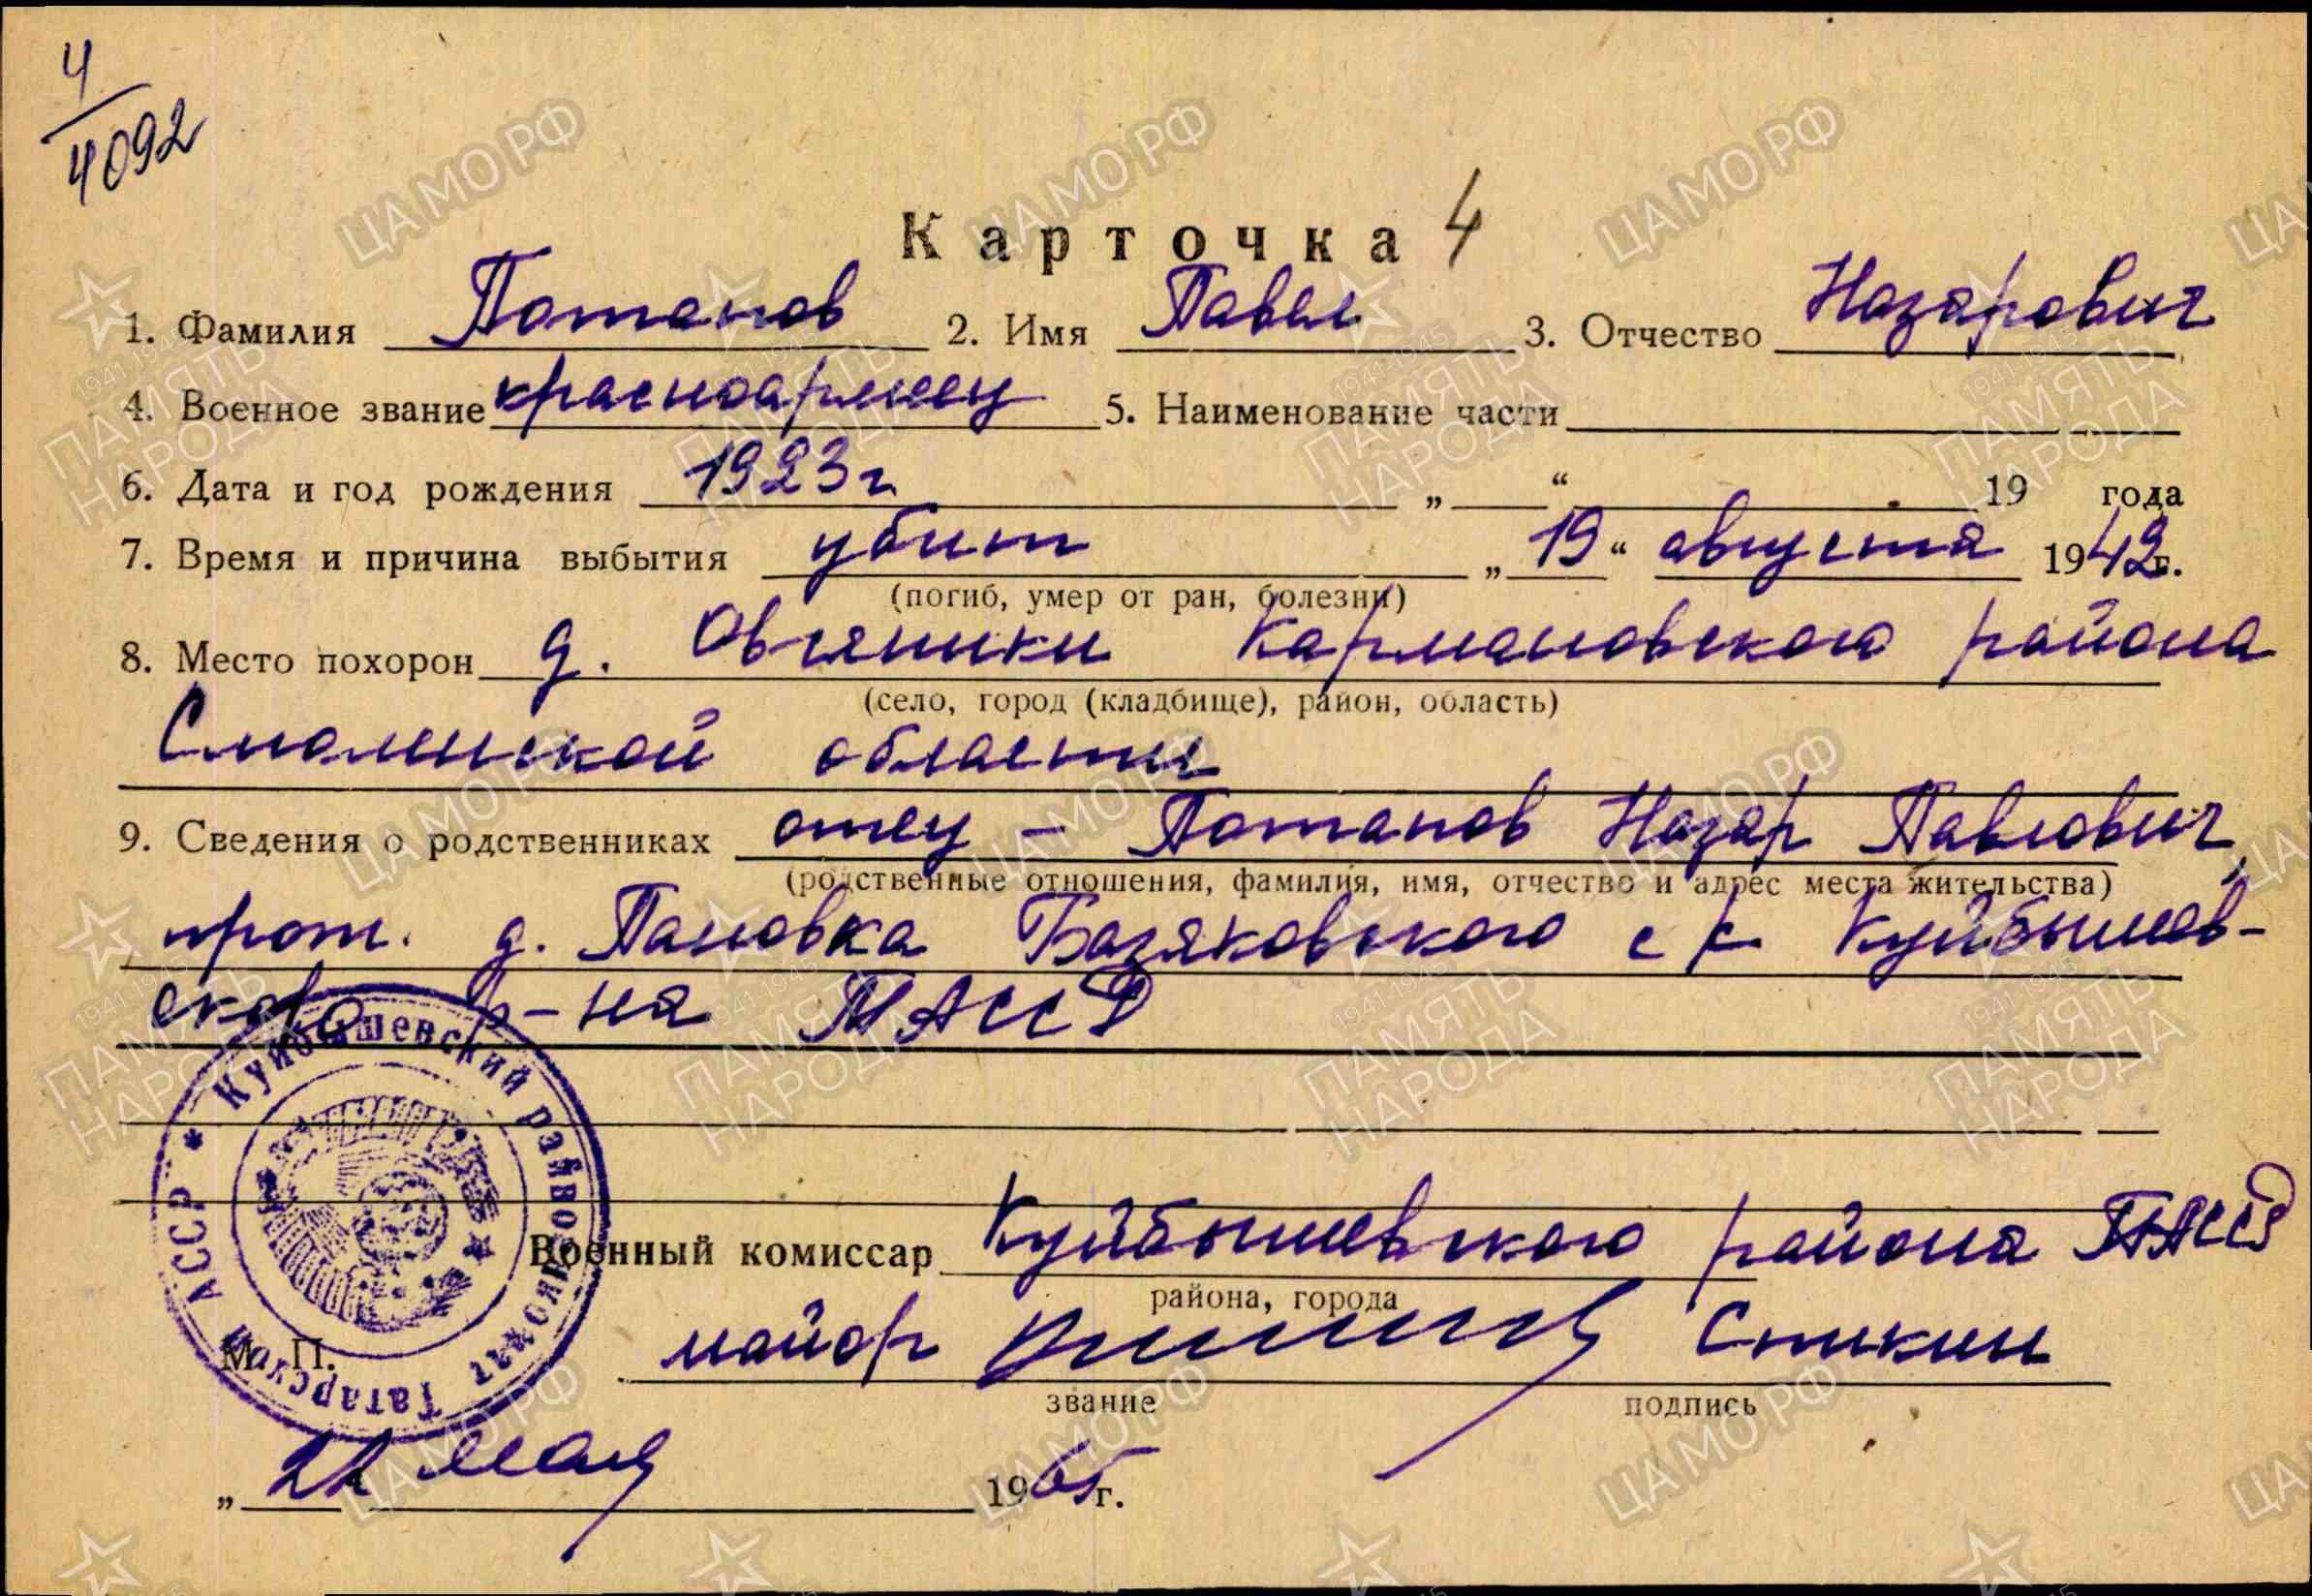 4
4092
Карточка 4
1. Фамилия Потапов 2. Имя Павел 3. Отчество Назарович
4. Военное звание красноармеец 5. Наименование части
6. Дата и год рождения 1923 г „ “ 19 года
7. Время и причина выбытия убит „ 19 “ августа 1942 г.
(погиб, умер от ран, болезни)
8. Место похорон д. Овсяники Кармановского района
(село, город (кладбище), район, область)
Смоленской области
9. Сведения о родственниках отец – Потапов Назар Павлович,
(родственные отношения, фамилия, имя, отчество и адрес места жительства)
прож. д. Пановка Базяковского с/с Куйбышев-
ского р-на ТАССР
* Куйбышевский райвоенкомат Татарской АССР
Военный комиссар Куйбышевского района ТАССР
района, города
М. П.
майор Спикин
звание подпись
„ 22 мая 1965 г.
ЦАМО РФ
1941-1945
ПАМЯТЬ НАРОДА